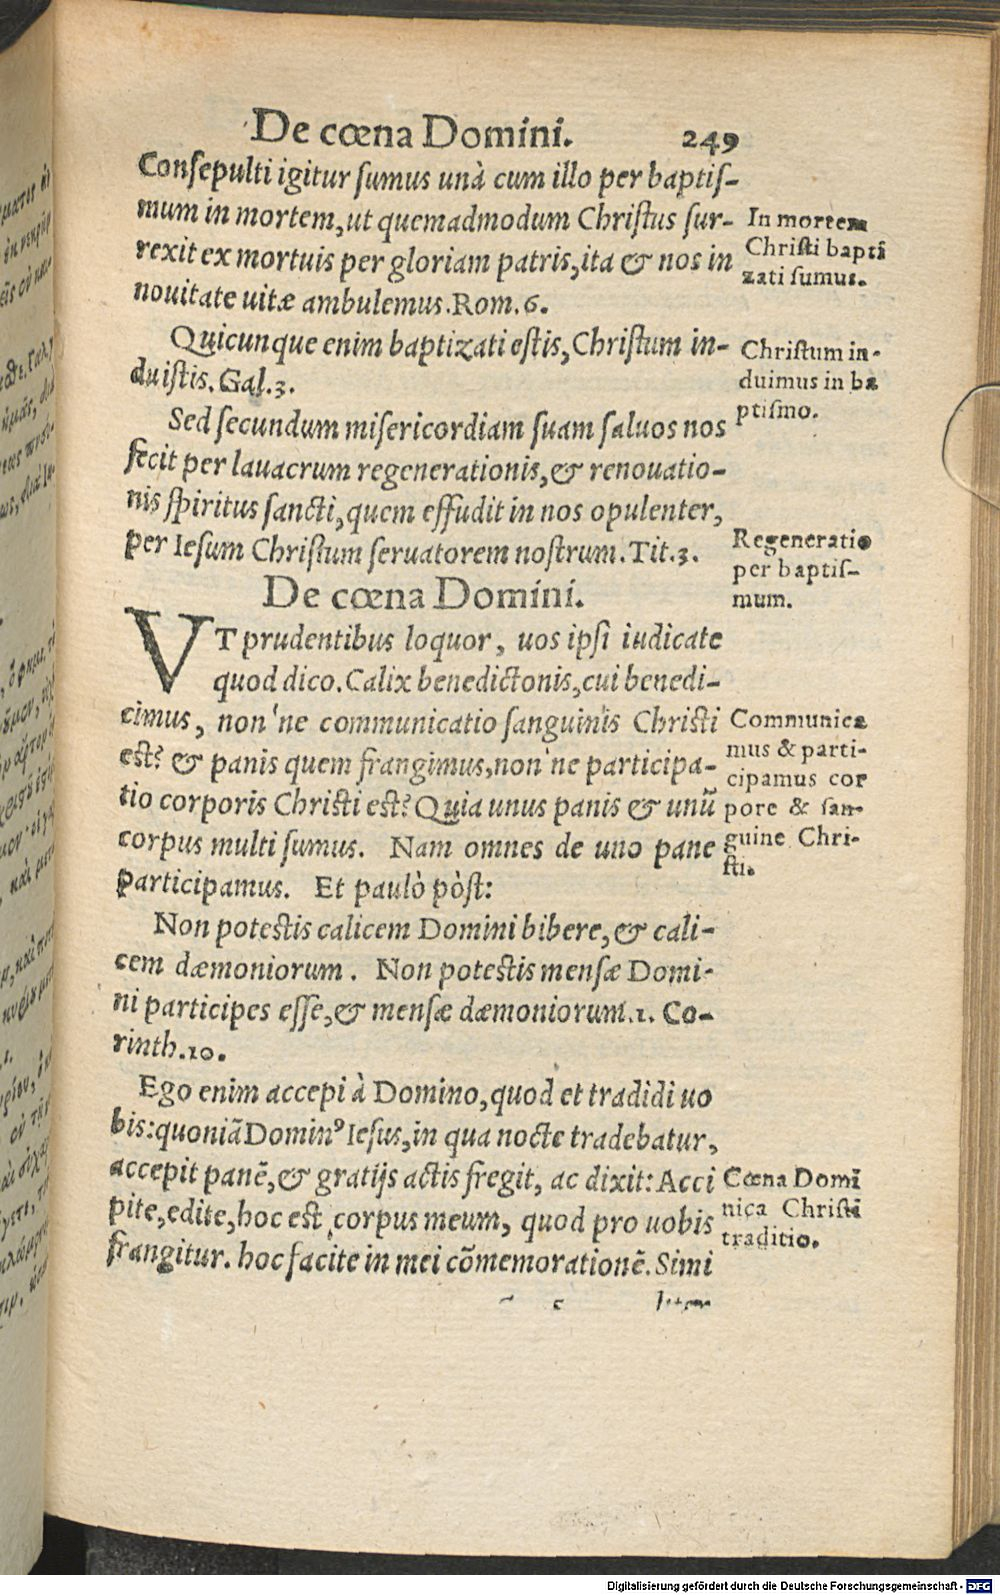 De cœna Domini. 249
Consepulti igitur sumus unà cum illo per baptis-
mum in mortem, ut quemadmodum Christus sur-
rexit ex mortuis per gloriam patris, ita & nos in
nouitate uitæ ambulemus. Rom. 6.
In mortem
Christi bapti
zati sumus.
Quicunque enim baptizati estis, Christum in-
duistis. Gal. 3.
Christum in-
duimus in ba
ptismo.
Sed secundum misericordiam suam saluos nos
fecit per lauacrum regenerationis, & renouatio-
nis spiritus sancti, quem effudit in nos opulenter,
per Iesum Christum seruatorem nostrum. Tit. 3.
Regeneratio
per baptis-
mum.
De cœna Domini.
VT prudentibus loquor, uos ipsi iudicate
quod dico. Calix benedictonis, cui benedi-
cimus, non'ne communicatio sanguinis Christi
est? & panis quem frangimus, non'ne participa-
tio corporis Christi est? Quia unus panis & unū
corpus multi sumus. Nam omnes de uno pane
participamus. Et paulò pòst:
Communica
mus & parti-
cipamus cor
pore & san-
guine Chri-
sti.
Non potestis calicem Domini bibere, & cali-
cem dæmoniorum. Non potestis mensæ Domi-
ni participes esse, & mensæ dæmoniorum. 1. Co-
rinth. 10.
Ego enim accepi à Domino, quod et tradidi uo
bis: quoniā Dominꝰ Iesus, in qua nocte tradebatur,
accepit panē, & gratijs actis fregit, ac dixit: Acci
pite, edite, hoc est corpus meum, quod pro uobis
frangitur. hoc facite in mei cōmemorationē. Simi
Cœna Domi
nica Christi
traditio.
Digitalisierung gefördert durch die Deutsche Forschungsgemeinschaft - DFG